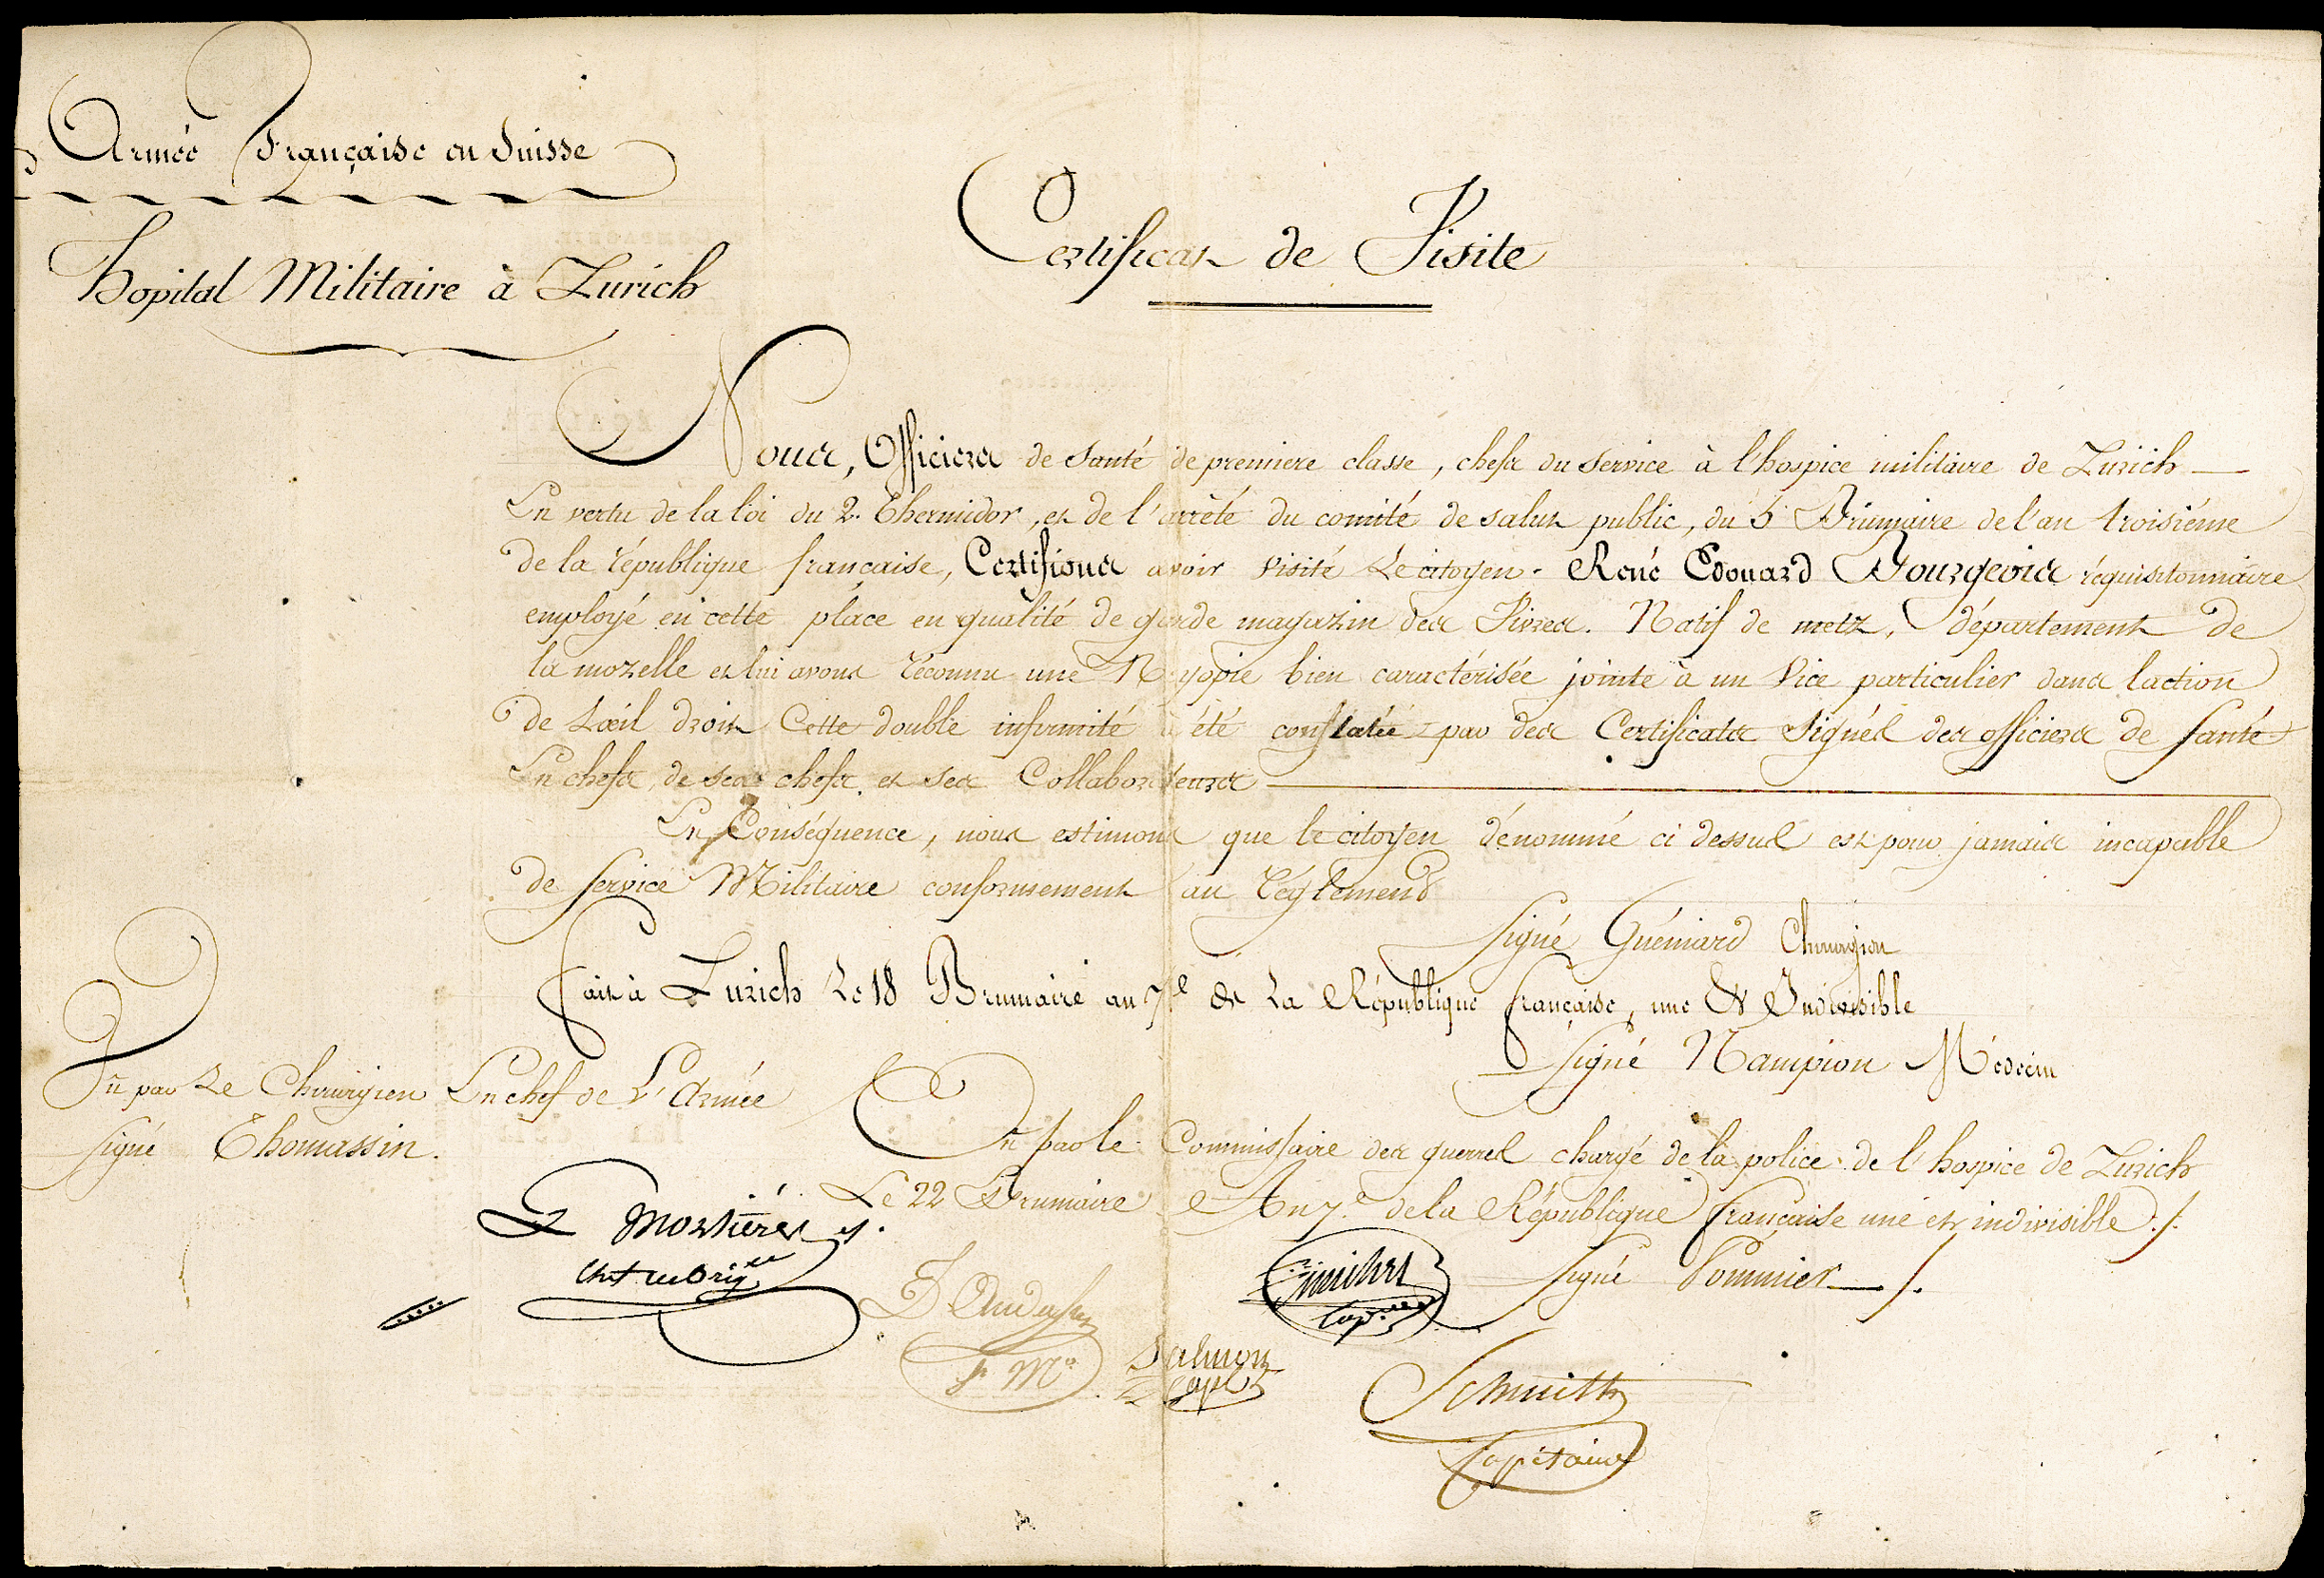 Armée Française en Suisse
Hopital Militaire à Zurich
Certificat de Visite
Nous, Officiers de Santé de premiere classe, chefs du Service à l'hospice militaire de Zurich
En vertu de la loi du 2. Thermidor, et de l'arrêté du comité de salut public, du 5 Brumaire de l'an troisiéme
de la république française, Certifions avoir visité Le citoyen. René Edouard Bourgeois réquisitionnaire
employé en cette place en qualité de garde magazin des Vivres. Natif de metz, département de
la mozelle et lui avons reconnu une Myopie bien caractérisée jointe à un Vice particulier dans laction
de Lœil droit Cette double infirmité à été constatée par des Certificats Signés des officiers de Santé
En chefs, de ses chefs et ses Collaborateurs
En Conséquence, nous estimons que le citoyen dénommé ci dessus est pour jamais incapable
de Service Militaire conformement au réglement
Signé Guéniard Chirurgien
Fait à Zurich Le 18 Brumaire an 7e de La République française, une Et Indivisible
Signé Nampion Médecin
Vu par Le Chirurgien En chef de L'Armée
Signé Thomassin.
Vu par le Commissaire des guerres chargé de la police de l'hospice de Zurich
Le 22 Brumaire An 7e de la République française une et indivisible ./.
Signé Pommier ./.
Salmon
Cape
Schmitt
Capitaine